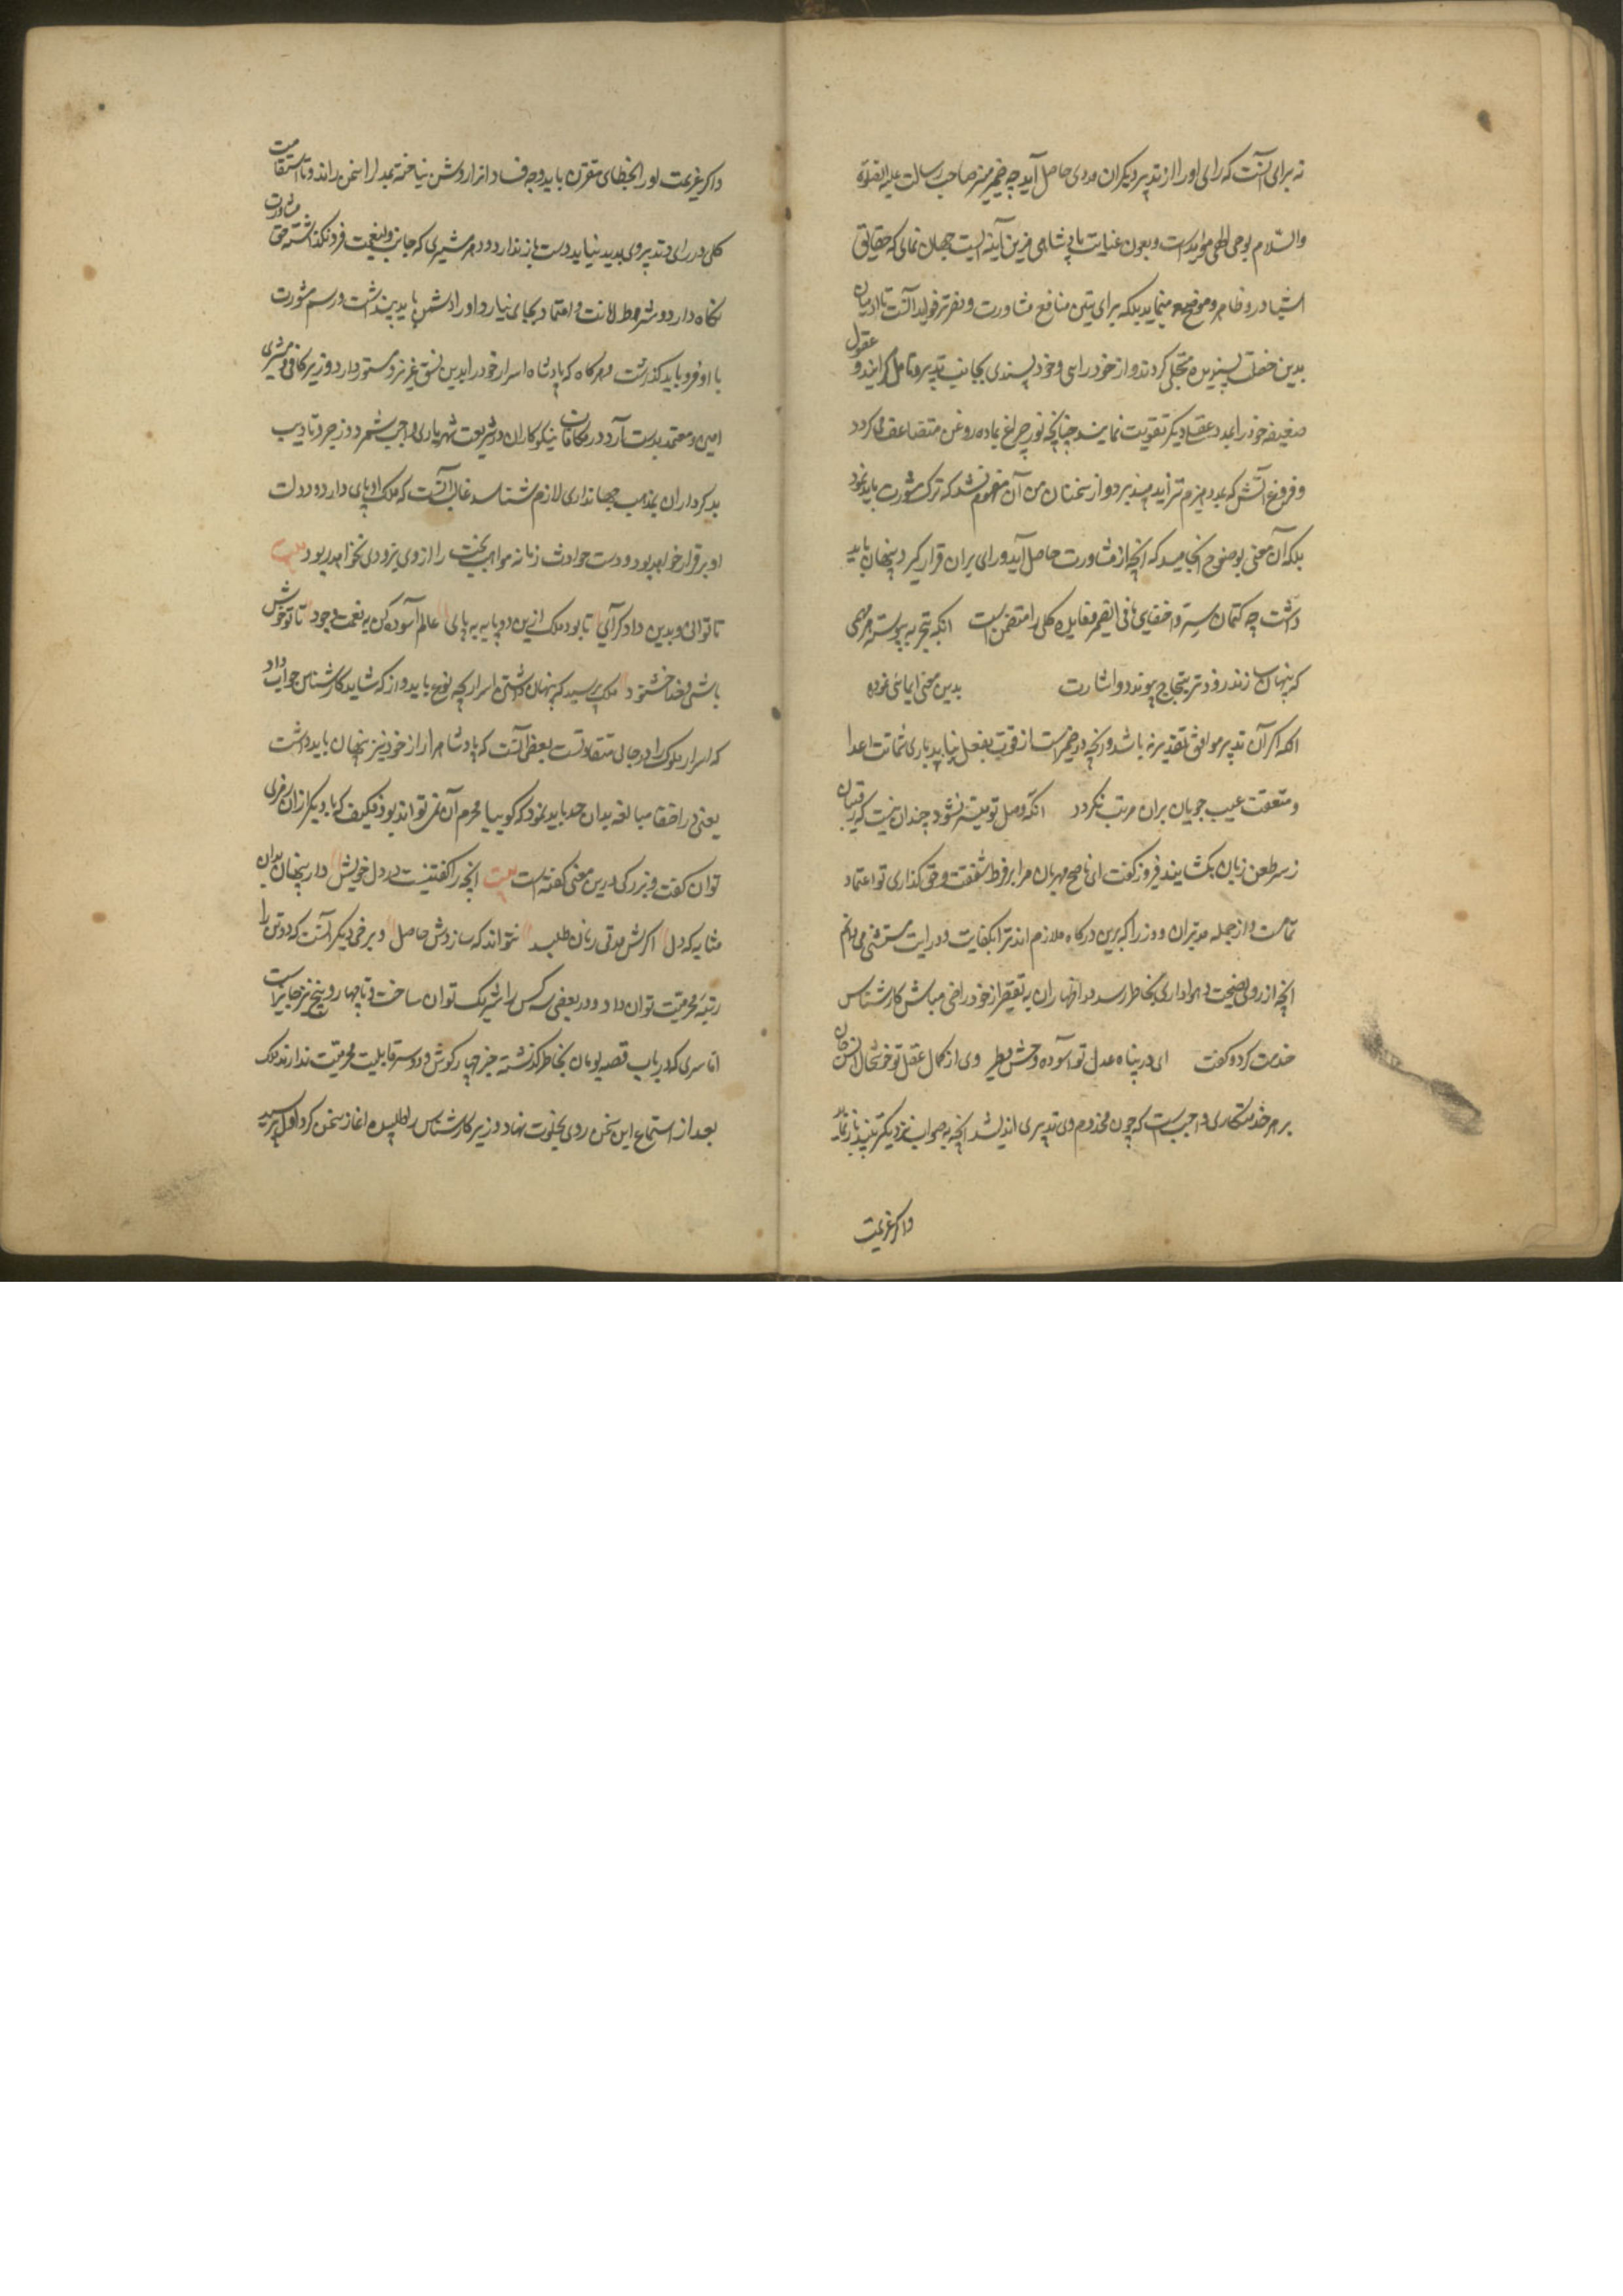 نه برای آنست که رای او را از تدبیر دیگران مددی حاصل آید چه ضمیر منیر صاحب رسالت علیه الصلوة
والسلام بوحی الهی مؤید است و بعون عنایت پادشاهی فرین آینه ایست جهان نمای که حقایق
اشیا درو ظاهر و موضح مینماید بلکه برای تبیین منافع مشاورت و نشر فواید آنست تا ادمیان
بدین خصلت پسندیده متحلی کردند و از خود رایی و خود پسندی بجانب تدبیر و تامل کرایند و عقول
ضعیفه خود را بمدد عقل دیگر تقویت نمایند چنانچه نور چراغ بماده روغن متضاعف می کردد
و فروغ آتش که بمدد هیزم تزاید میپذیرد و از سخنان من آن مفهوم نشد که ترک مشورت باید نمود
بلکه آن معنی بوضوح انجامید که آنچه از مشاورت حاصل آید و رای بران قرار کیرد پنهان باید
داشت چه کتمان سر و اخفای ما فی الضمیر دو فایده کلی را متضمن است انکه بتجربه پیوسته هر مهمی
که پنهان سازند زودتر بنجاح پیوندد و اشارت بدین معنی ایمائی نموده
انکه اکر آن تدبیر موافق تقدیر نه باشد و آنچه در ضمیر است از قوت بفعل نیاید باری شماتت اعدا
و متعقت عیب جویان بران مرتب نکردد انکه وصل تو میسر نشود چندان نیست که رقیبان
ز سر طعن زبان بکشایند فیروز کفت ای ناصح مهربان مرا بر فرط شفقت و حق گذاری تو اعتماد
تمامست و از جمله مدبران و وزرا که برین درکاه ملازم اند ترا بکفایت و درایت مستثنی می دانم
آنچه از روی نصیحت و هواداری بخاطر رسد در اظهار ان به تقصیر از خود راضی مباش کارشناس
خدمت کرد و کفت ای در پناه عدل تو آسوده وحش و طیر وی از کمال عقل تو خوشحال انس و جان
بر هر خدمتکاری واجبست که چون مخدوم وی تدبیری اندیشد آنچه به صواب نزدیکتر بیند باز نماید
و اکر عزیمت
و اکر عزیمت او را بخطای مقرون یابد وجه فساد آنرا روشن نیافته بمدارا سخن راند و تا استقامت
کلی در رای و تدبیر وی پدید نیاید دست باز ندارد و هر مشیری که جانب ولینعمت فرو نکذاشته حق مشاورت
نکاه دارد و شروط امانت و اعتماد بجای نیارد او را دشمن باید پنداشت و رسم مشورت
با او فرو باید کذاشت و هر کاه که پادشاه اسرار خود را بدین نسق عزیز و مستور دارد و وزیر کافی و مشیری
امین و معتمد بدست آرد و مکافات نیکوکاران در شریعت شهریاری واجب شمرد و زجر و تادیب
بدکرداران بمذهب جهانداری لازم شناسد غالبا آنست که ملک او پای دار و دولت
او برقرار خواهد بود و دست حوادث زمانه مواهب بخت را از وی بزودی نخواهد ربود بیت
تا توانی و بدین داد کرآی تا بود ملک ازین دو پایه به پای عالم آسوده کن به نعمت و جود تا تو خوش
باشی و خدا خشنود ملک پرسید که پنهان داشتن اسرار بچه نوع باید و از که شاید کارشناس جواب داد
که اسرار ملوک را درجات متفاوتست بعضی آنست که پادشاه را از خود نیز پنهان باید داشت
یعنی در اخفا مبالغه بدان حد باید نمود که کوییا محرم آن نمی تواند بود فکیف که با دیگر ازان رمزی
توان کفت و بزرکی درین معنی کفته است بیت آنچه را کفتنیست در دل خویش دار پنهان بدان
مثابه که دل اکرش مدتی زبان طلبد نتواند که سازدش حاصل و برخی دیگر آنست که دو تن را
رتبه محرمیت توان داد و در بعضی سه کس را شریک توان ساخت و تا چهار و پنج نیز جایز است
اما سری که در باب قصه بومان بخاطر کذشته جز چهار کوش و دو سر قابلیت محرمیت ندارند ملک
بعد از استماع این سخن روی بخلوت نهاد و وزیر کارشناس را طلبیده اغاز سخن کرد اول پرسید